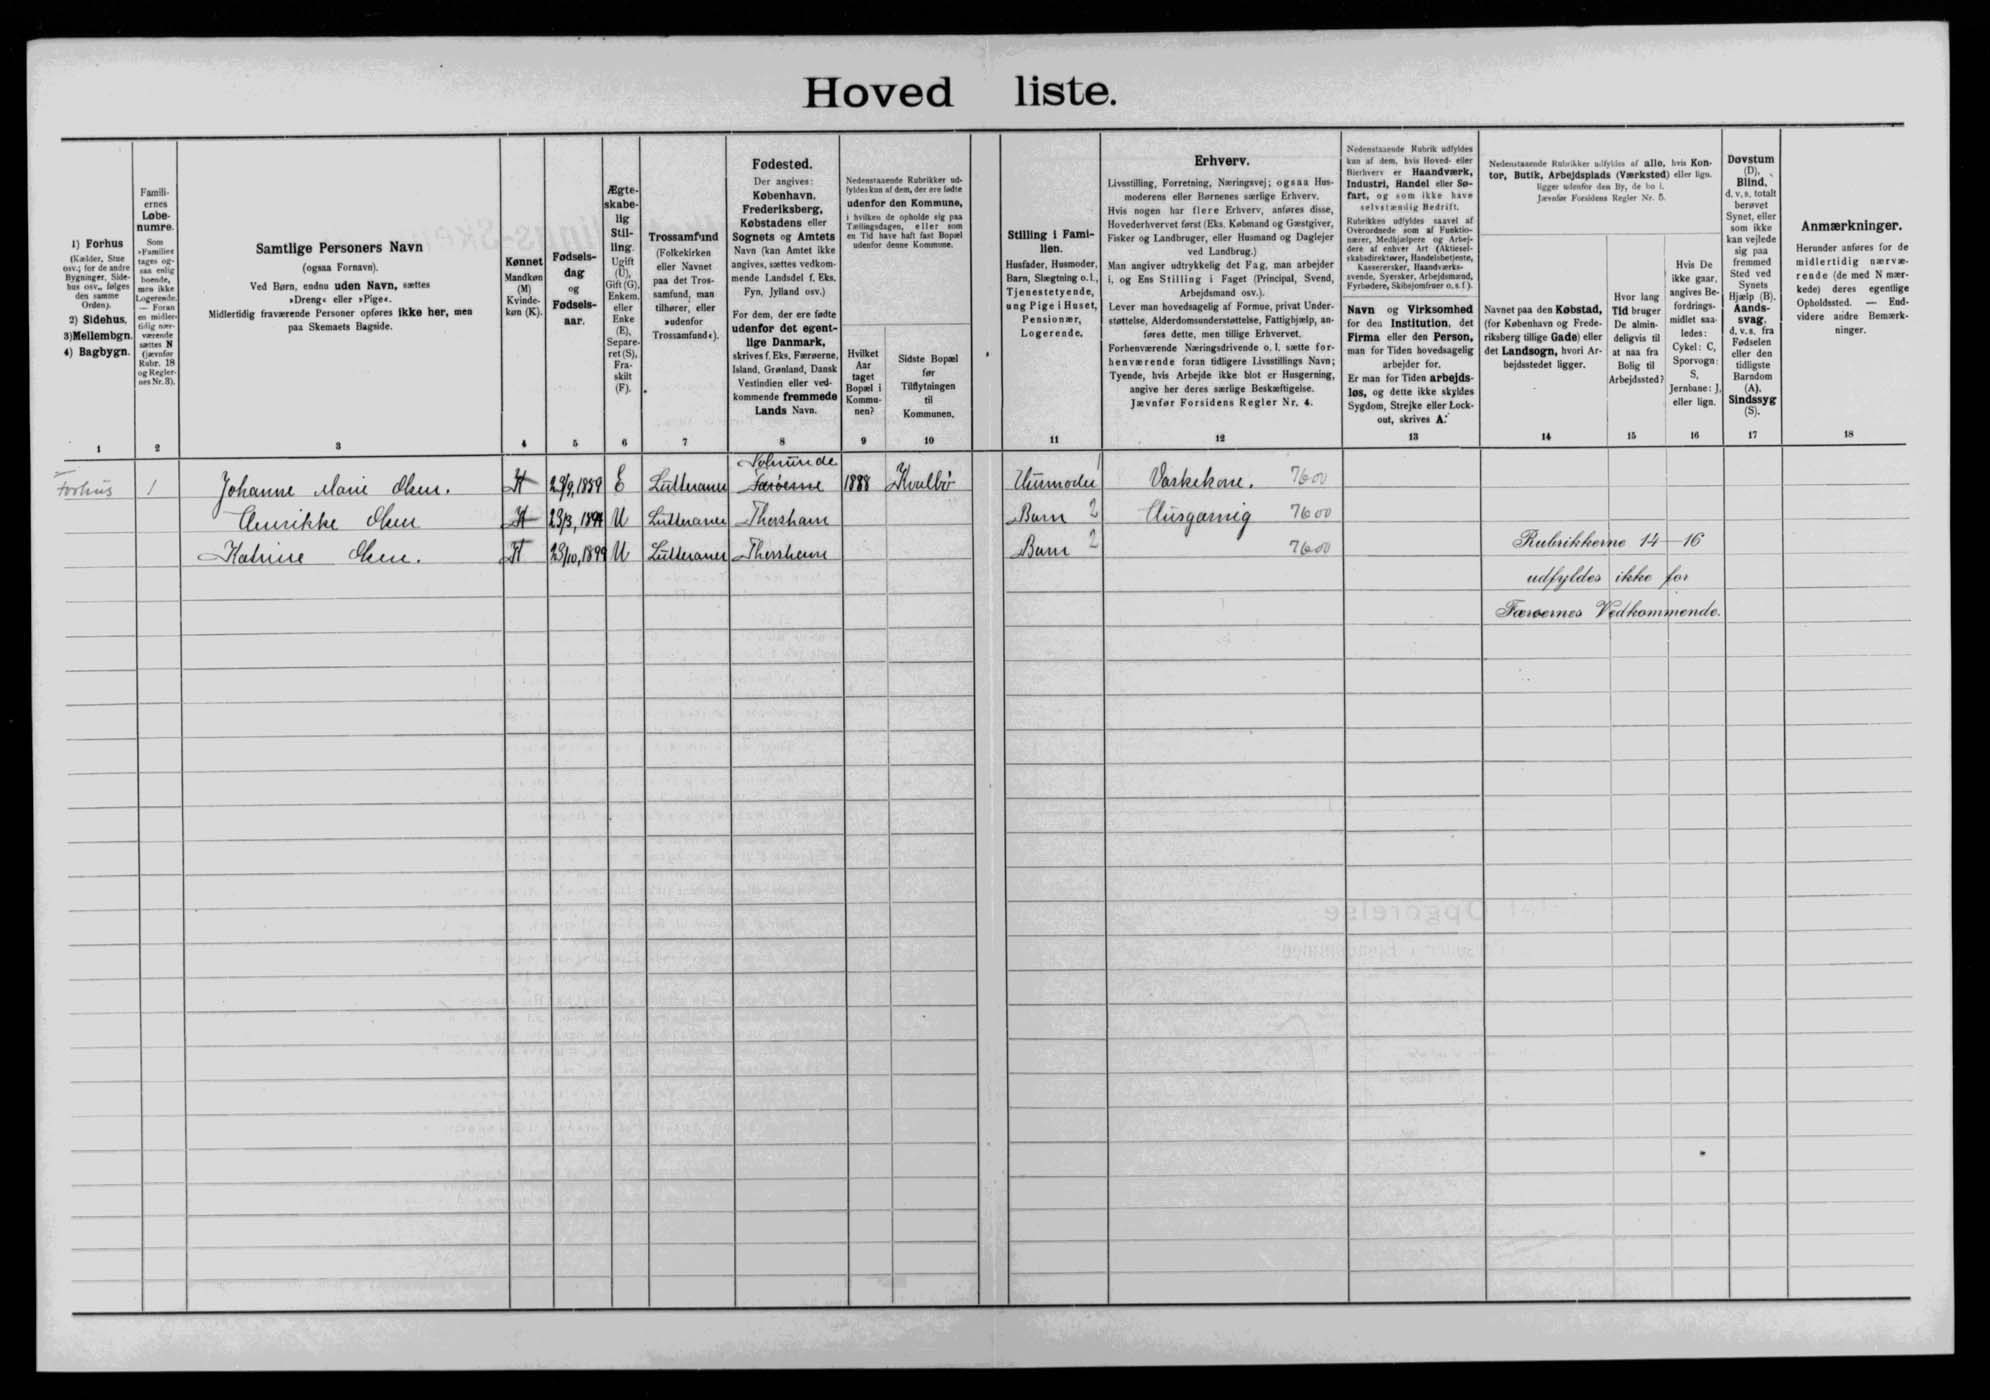 Hoved liste.
1) Forhus
(Kælder, Stue
osv.; for de andre
Bygninger, Side-
hus osv., følges
den samme
Orden).
2) Sidehus.
3) Mellembgn.
4) Bagbygn.
1
Famili-
ernes
Løbe-
numre.
Som
»Familie«
tages og-
saa enlig
boende,
men ikke
Logerende.
— Foran
en midler-
tidig nær-
værende
sættes N
(jævnfør
Rubr. 18
og Regler-
nes Nr. 3).
2
Samtlige Personers Navn
(ogsaa Fornavn).
Ved Børn, endnu uden Navn, sættes
»Dreng« eller »Pige«.
Midlertidig fraværende Personer opføres ikke her, men
paa Skemaets Bagside.
3
Kønnet
Mandkøn
(M)
Kvinde-
køn (K).
4
Fødsels-
dag
og
Fødsels-
aar.
5
Ægte-
skabe-
lig
Stil-
ling.
Ugift
(U),
Gift (G),
Enkem.
eller
Enke
(E),
Separe-
ret (S),
Fra-
skilt
(F).
6
Trossamfund
(Folkekirken
eller Navnet
paa det Tros-
samfund, man
tilhører, eller
»udenfor
Trossamfund«).
7
Fødested.
Der angives:
København,
Frederiksberg,
Købstadens eller
Sognets og Amtets
Navn (kan Amtet ikke
angives, sættes vedkom-
mende Landsdel f. Eks.
Fyn, Jylland osv.)
For dem, der ere fødte
udenfor det egent-
lige Danmark,
skrives f. Eks. Færøerne,
Island, Grønland, Dansk
Vestindien eller ved-
kommende fremmede
Lands Navn.
8
Nedenstaaende Rubrikker ud-
fyldes kun af dem, der ere fødte
udenfor den Kommune,
i hvilken de opholde sig paa
Tællingsdagen, eller som
en Tid have haft fast Bopæl
udenfor denne Kommune.
Hvilket
Aar
taget
Bopæl i
Kommu-
nen?
9
Sidste Bopæl
før
Tilflytningen
til
Kommunen.
10
Stilling i Fami-
lien.
Husfader, Husmoder,
Barn, Slægtning o. l.,
Tjenestetyende,
ung Pige i Huset,
Pensionær,
Logerende.
11
Erhverv.
Livsstilling, Forretning, Næringsvej; ogsaa Hus-
moderens eller Børnenes særlige Erhverv.
Hvis nogen har flere Erhverv, anføres disse,
Hovederhvervet først (Eks. Købmand og Gæstgiver,
Fisker og Landbruger, eller Husmand og Daglejer
ved Landbrug.)
Man angiver udtrykkelig det Fag, man arbejder
i, og Ens Stilling i Faget (Principal, Svend,
Arbejdsmand osv.).
Lever man hovedsagelig af Formue, privat Under-
støttelse, Alderdomsunderstøttelse, Fattighjælp, an-
føres dette, men tillige Erhvervet.
Forhenværende Næringsdrivende o. l. sætte for-
henværende foran tidligere Livsstillings Navn;
Tyende, hvis Arbejde ikke blot er Husgerning,
angive her deres særlige Beskæftigelse.
Jævnfør Forsidens Regler Nr. 4.
12
Nedenstaaende Rubrik udfyldes
kun af dem, hvis Hoved- eller
Bierhverv er Haandværk,
Industri, Handel eller Sø-
fart, og som ikke have
selvstændig Bedrift.
Rubrikkes udfyldes saavel af
Overordnede som af Funktio-
nærer, Medhjælpere og Arbej-
dere af enhver Art (Aktiesel-
skabsdirektører, Handelsbetjente,
Kasserersker, Haandværks-
svende, Syersker, Arbejdsmænd,
Fyrbødere, Skibsjomfruer o. s. f.).
Navn og Virksomhed
for den Institution, det
Firma eller den Person,
man for Tiden hovedsagelig
arbejder for.
Er man for Tiden arbejds-
løs, og dette ikke skyldes
Sygdom, Strejke eller Lock-
out, skrives A.
13
Nedenstaaende Rubrikker udfyldes af alle, hvis Kon-
tor, Butik, Arbejdsplads (Værksted) eller lign.
ligger udenfor den By, de bo i.
Jævnfør Forsidens Regler Nr. 5.
Navnet paa den Købstad,
(for København og Frede-
riksberg tillige Gade) eller
det Landsogn, hvori Ar-
bejdsstedet ligger.
14
Hvor lang
Tid bruger
De almin-
deligvis til
at naa fra
Bolig til
Arbejdssted?
15
Hvis De
ikke gaar,
angives Be-
fordrings-
midlet saa-
ledes:
Cykel: C,
Sporvogn:
S,
Jernbane: J,
eller lign.
16
Døvstum
(D),
Blind,
d. v. s. totalt
berøvet
Synet, eller
som ikke
kan vejlede
sig paa
fremmed
Sted ved
Synets
Hjælp (B).
Aands-
svag,
d. v. s. fra
Fødselen
eller den
tidligste
Barndom
(A).
Sindssyg
(S).
17
Anmærkninger.
Herunder anføres for de
midlertidig nærvæ-
rende (de med N mær-
kede) deres egentlige
Opholdssted. — End-
videre andre Bemærk-
ninger.
18
Forhus 1 Johanne Marie Olsen. K 29/9, 1859 E Lutteraner Færøerne 1888 Kvalbø Husmoder 1 Vaskekone. 7600
Henrikke Olsen K 23/3, 1894 U Lutteraner Thorshavn Barn 2 Husgærnig 7600
Katrine Olsen. K 23/10, 1899 U Lutteraner Thorshavn Barn 2 7600
Rubrikkerne 14-16
udfyldes ikke for
Færøernes Vedkommende.